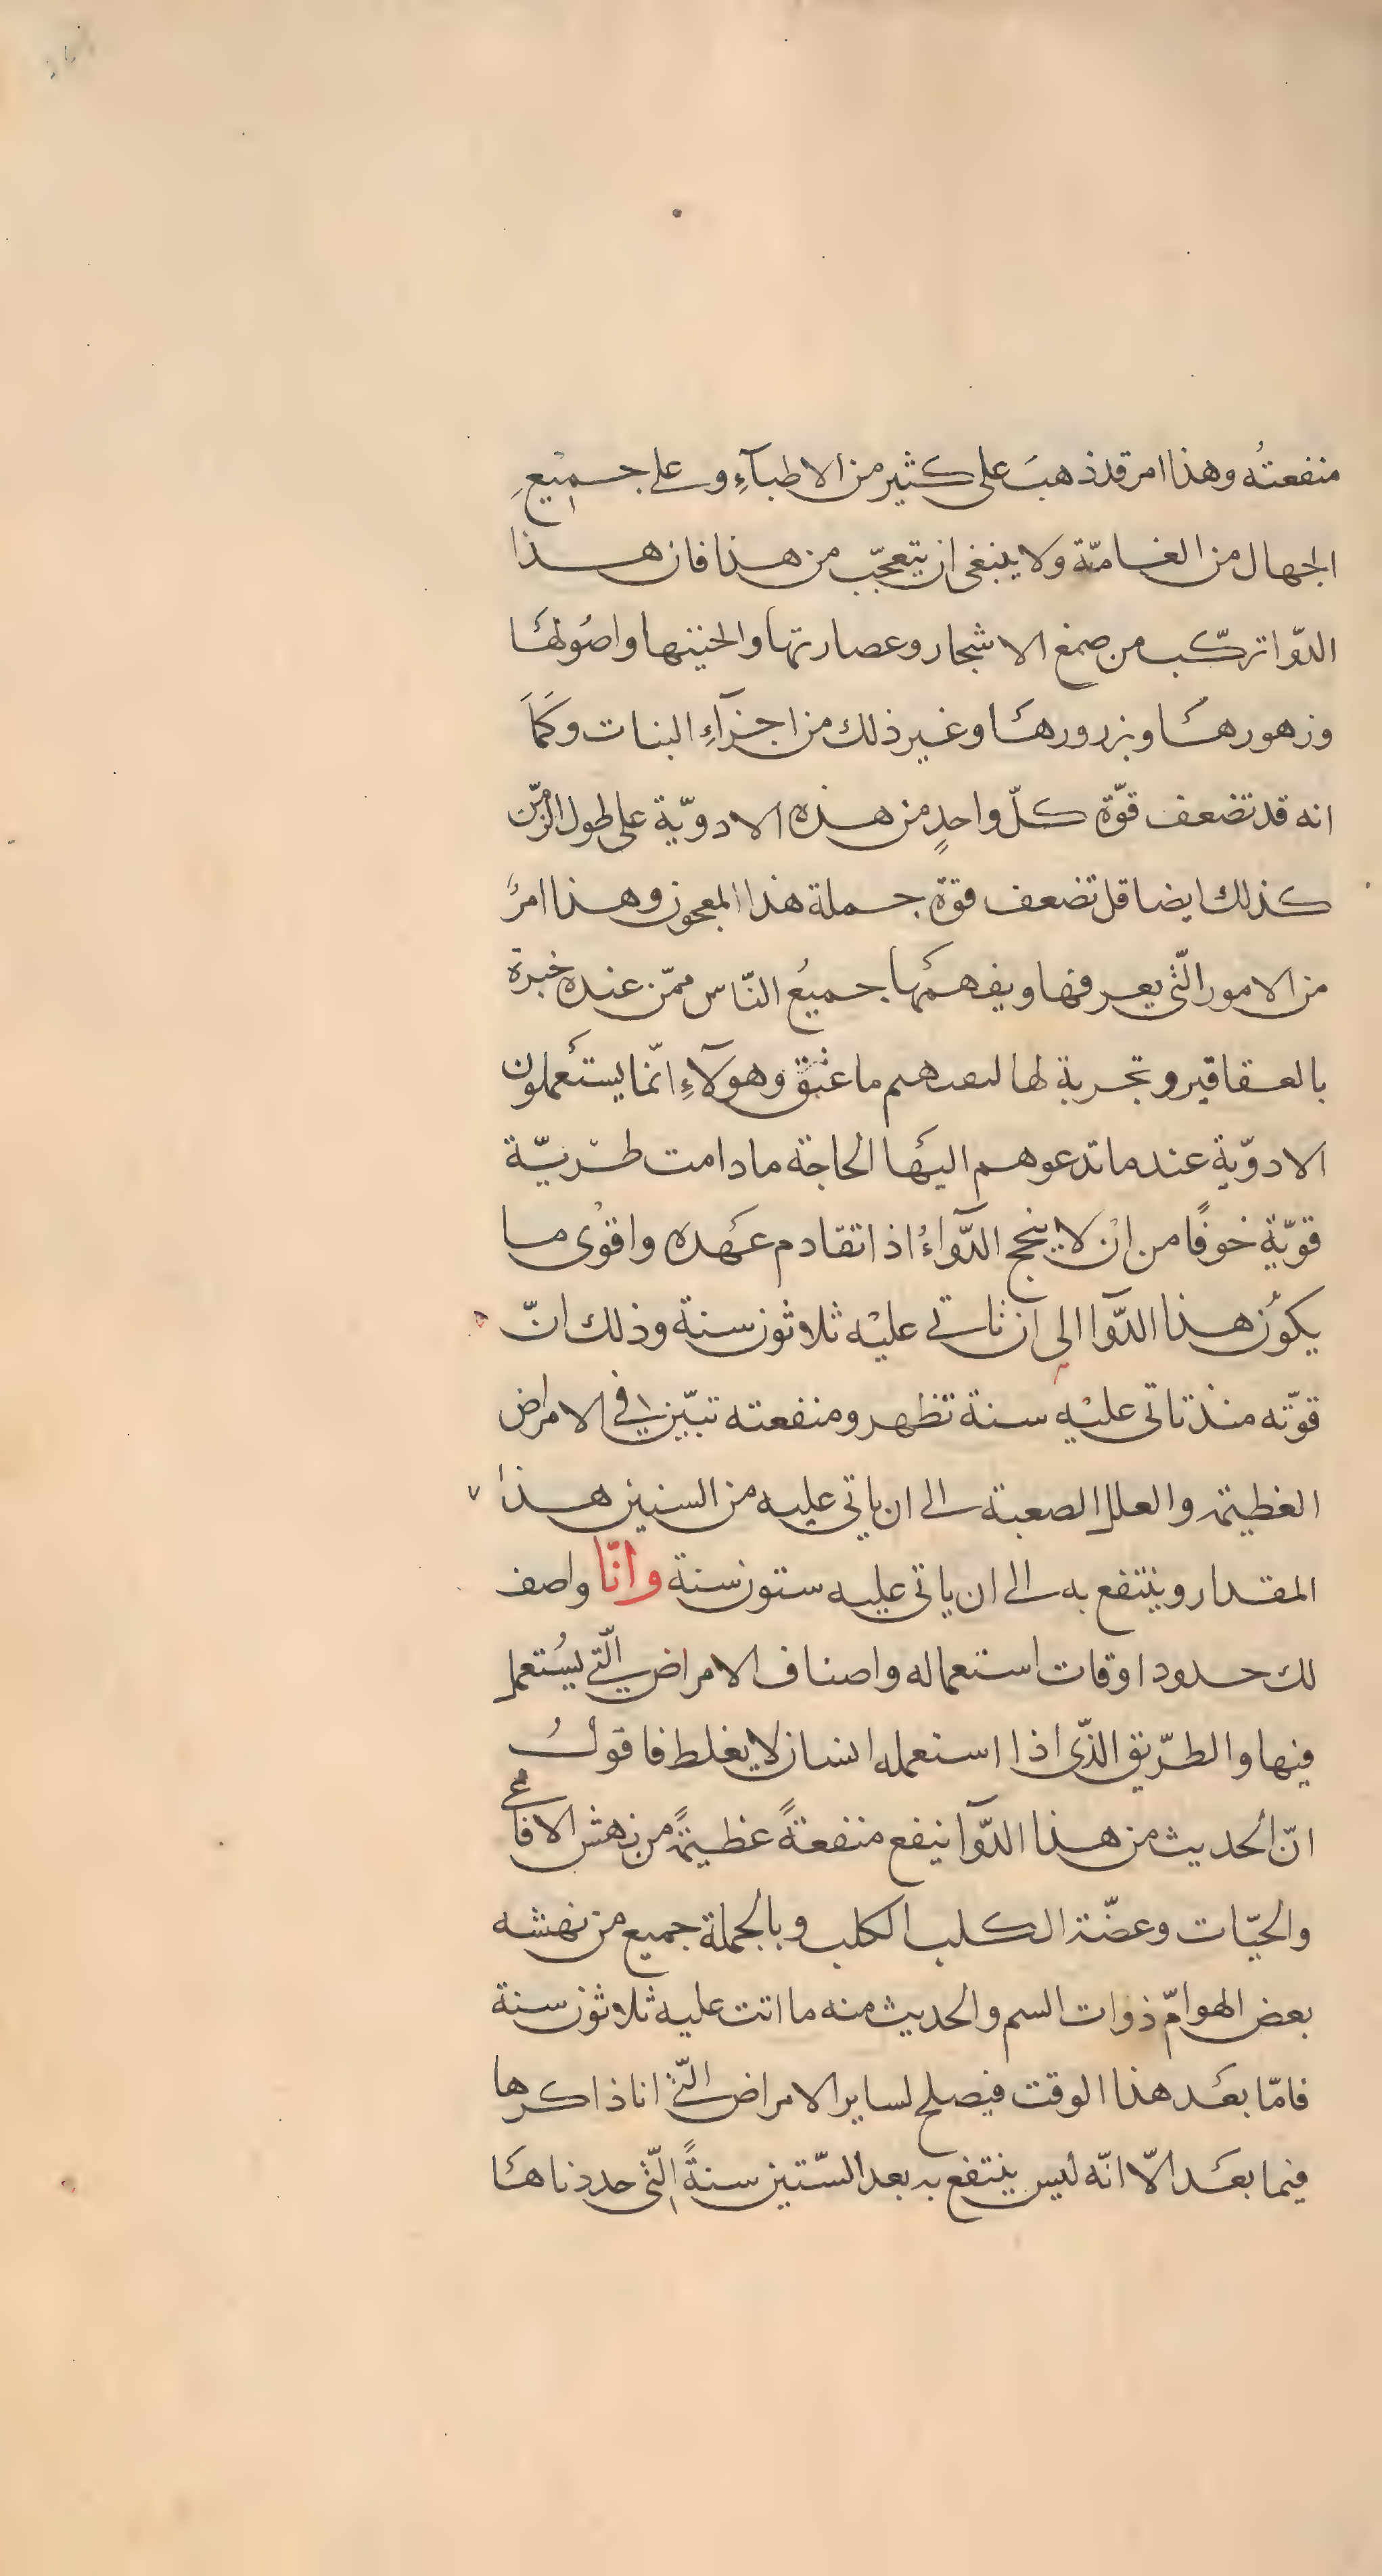 منفعتُه وهذا امر قد ذهبَ على كثير من الاطبآءِ وعلى جميعِ
الجهال من الغامّة ولا ينبغى ان يتعجّب من هذا فان هذا
الدّوا تركّب من صمغ الاشجار وعصارتها والحيتها واصُولهَا
وزهورهَا وبزرورهَا وغير ذلك من اجزآءِ النبات وكمَا
انه قد تضعف قوّة كلّ واحدٍ من هذه الادوّية على طول الزّمن
كذلك ايضا قد تضعف قوة جملة هذا المعجون وهذا امرٌ
من الامور الّتى يعرفها ويفهمَها جميعُ النّاس ممّن عنده خبرة
بالعقاقير وتجربة لها ما عتق وهولآءِ انّما يستَعملون
الادوّية عند ما تدعوهم اليهَا الحاجة ما دامت طرّيّة
قويّة خوفًا من انْ لا ينجح الدّوآءُ اذا تقادم عهَده واقوْى ما
يكوُن هذا الدّوآ الى ان تاتى عليْه ثلاثون سنة وذلك انّ
قوّته منذ تاتى عليْه سنة تظهر ومنفعته تبّين فى الامراض
العظيمة والعلل الصعبة الى ان ياتى عليه من السنين هذا
المقدار وينتفع به الى ان ياتى عليه ستون سنة وانّا واصف
لك حدود اوقات استعماله واصناف الامراض الّتى يُستعمل
فيها والطرّيق الذّى اذا استعمله انسان لا يغلط فاقولُ
انّ الحديث من هذا الدّوآ ينفع منفعةً عظيمةً من نهش الافاعى
والحيّات وعضّة الكلب الكلب وبالجملة جميع من نهشه
بعض الهوامّ ذوات السم والحديث منه ما اتت عليه ثلاثون سنة
فامّا بعَد هذا الوقت فيصلح لساير الامراض الّتى انا ذاكرها
فيما بعَد الّا انّه ليس ينتفع به بعد السّتين سنةً الّتى حددناهَا